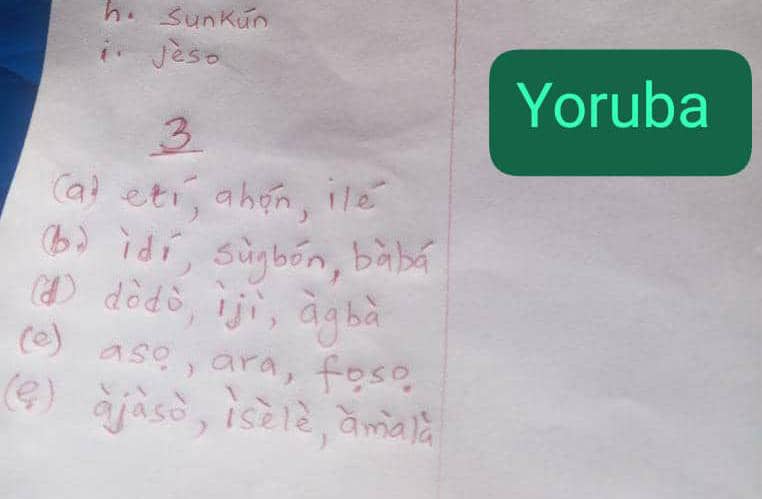 h. Sunkún
i. Jèso
Yoruba
3
(a) etí, ahọ́n, ilé
(b) ìdí, sùgbón, bàbá
(d) dòdò, ìjì, àgbà
(e) asọ, ara, fọsọ
(ẹ) àjàsò, ìsèlè, àmàlà